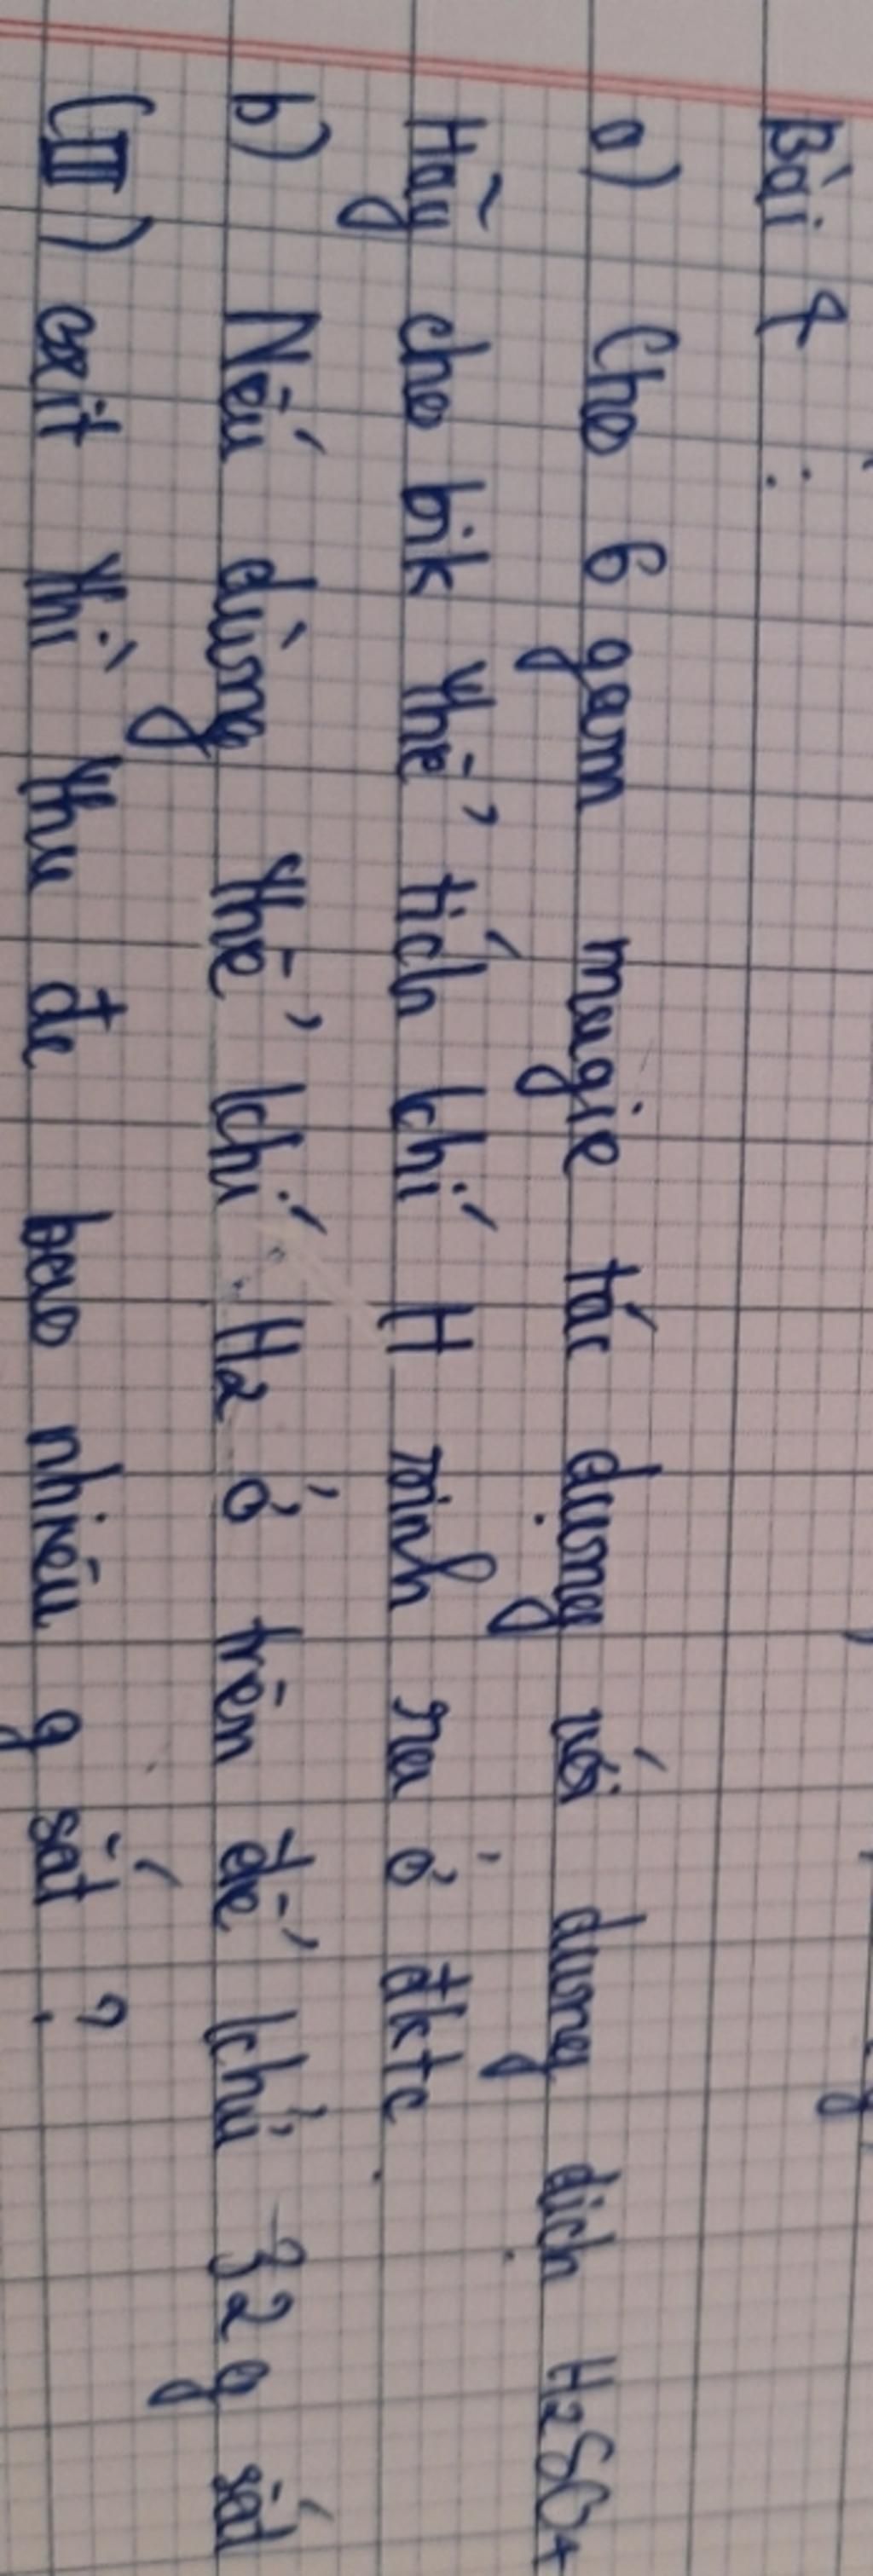 Bài 4 :
a) Cho 6 gam magie tác dụng với dung dịch H2SO4
Hãy cho bik thể tích khí H sinh ra ở đktc.
b) Nếu dùng thể khí H2 ở trên để khử 32g sắt
(III) oxit thì thu đc bao nhiêu g sắt ?